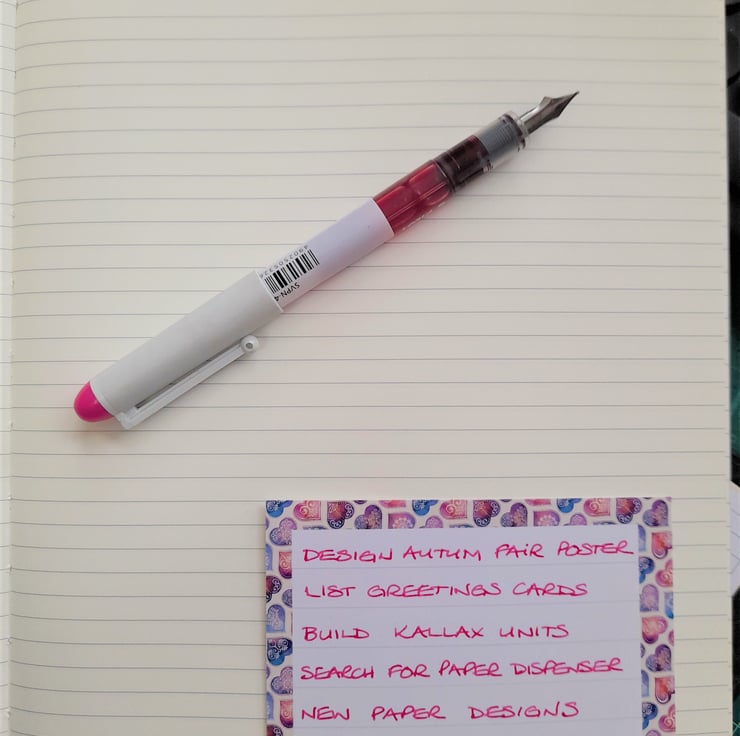 4902505334
SVPN-4
DESIGN AUTUM FAIR POSTER
LIST GREETINGS CARDS
BUILD KALLAX UNITS
SEARCH FOR PAPER DISPENSER
NEW PAPER DESIGNS